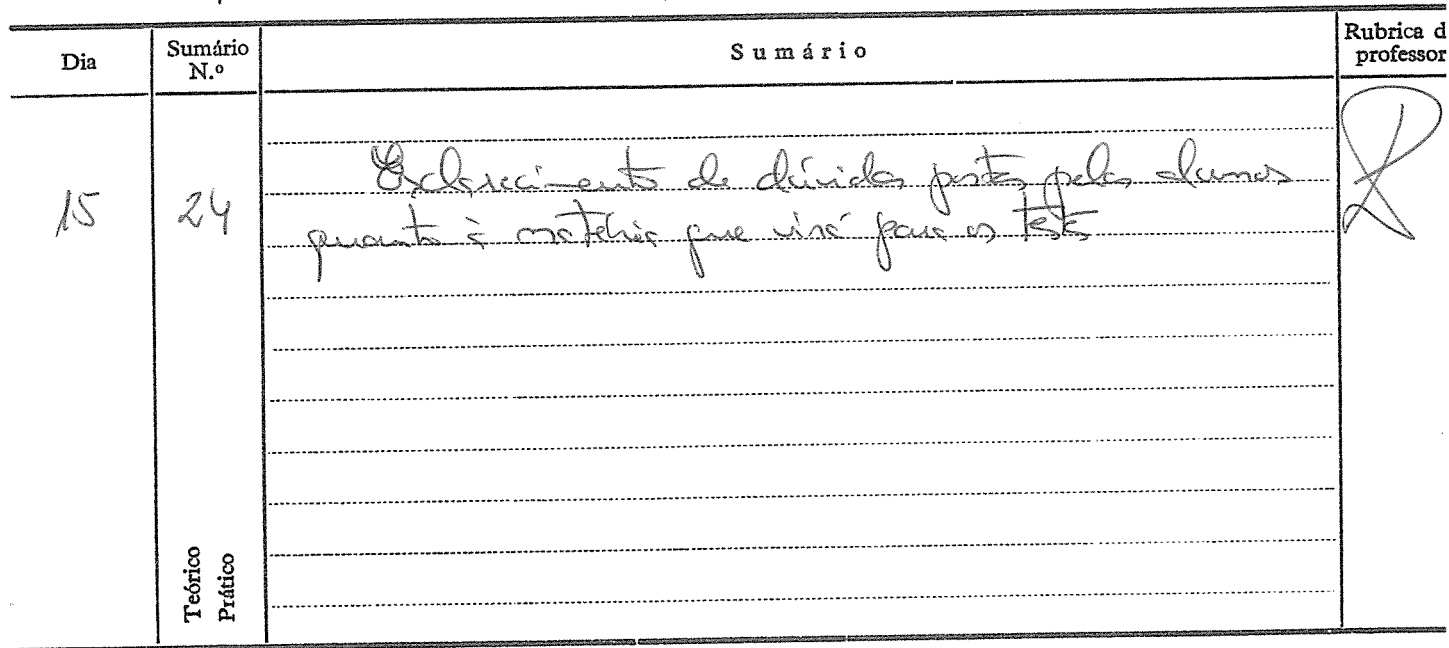 Dia
Sumário
N.º
Sumário
Rubrica d
professor
15
24
Esclarecimento de dúvidas postas pelos alunos
quanto à matéria que virá para os testes
Teórico
Prático